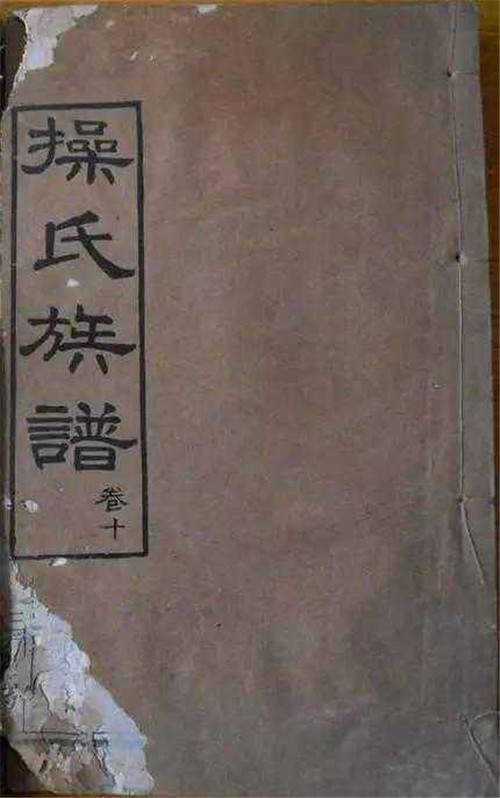 操氏族譜
卷十